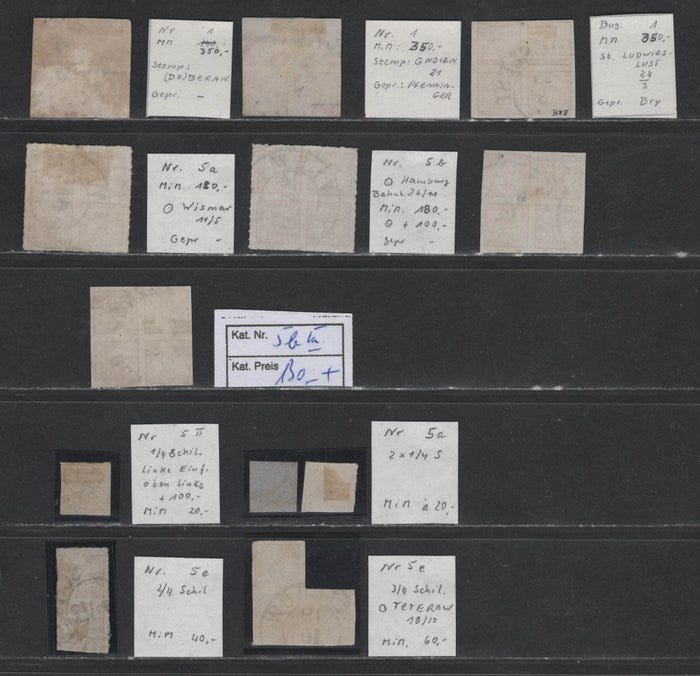 Nr 1
Min 350,-
Stemp:
(DO)BERAN
Gepr. -
1
Nr. 1
Min: 350,-
Stemp: GNOIEN
21
Gepr.: PFENNIN-
GER
Bug. 1
Min. 350,-
St. LUDWIGS-
LUST
24
3
Gepr. Bry
Nr. 5a
Min. 180,-
Wismar
11/5
Gepr -
Nr. 5b
Hamburg
Bahnh. 26/11
Min. 180,-
+ 100,-
gepr -
Kat. Nr. 5b
Kat. Preis 130,- +
Nr 5 II
1/4 Schil.
Linke Einf.
oben links
+ 100,-
Min 20,-
Nr 5a
2 x 1/4 S
Min à 20,-
Nr. 5e
2/4 Schil
Min 40,-
Nr 5e
3/4 Schil.
TETEROW
19/10
Min. 60,-